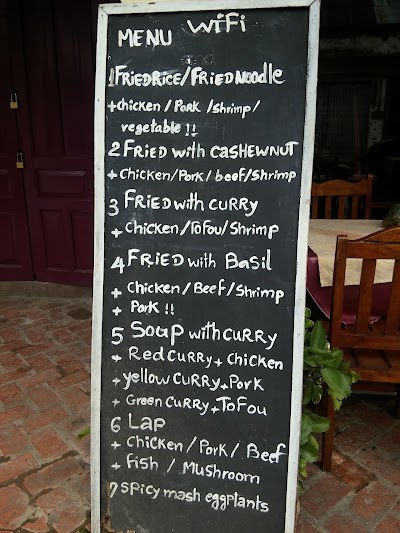 WiFi
MENU
1 FRIED RICE/FRIED NOODLE
+ chicken / PORK / shrimp /
vegetable !!
2 FRIED with CASHEWNUT
+ CHicken/Pork/beef/SHrimp
3 FRIED with CURRY
+ CHicken/ToFou/Shrimp
4 FRIED with Basil
+ CHicken/Beef/SHrimp
+ PORK !!
5 Soup with CURRY
+ Red CURRY + CHicken
+ yellow CURRY + PORK
+ Green CURRY + ToFou
6 LAP
+ CHicken / PORK / Beef
+ Fish / MUSHROOM
7 spicy mash eggplants